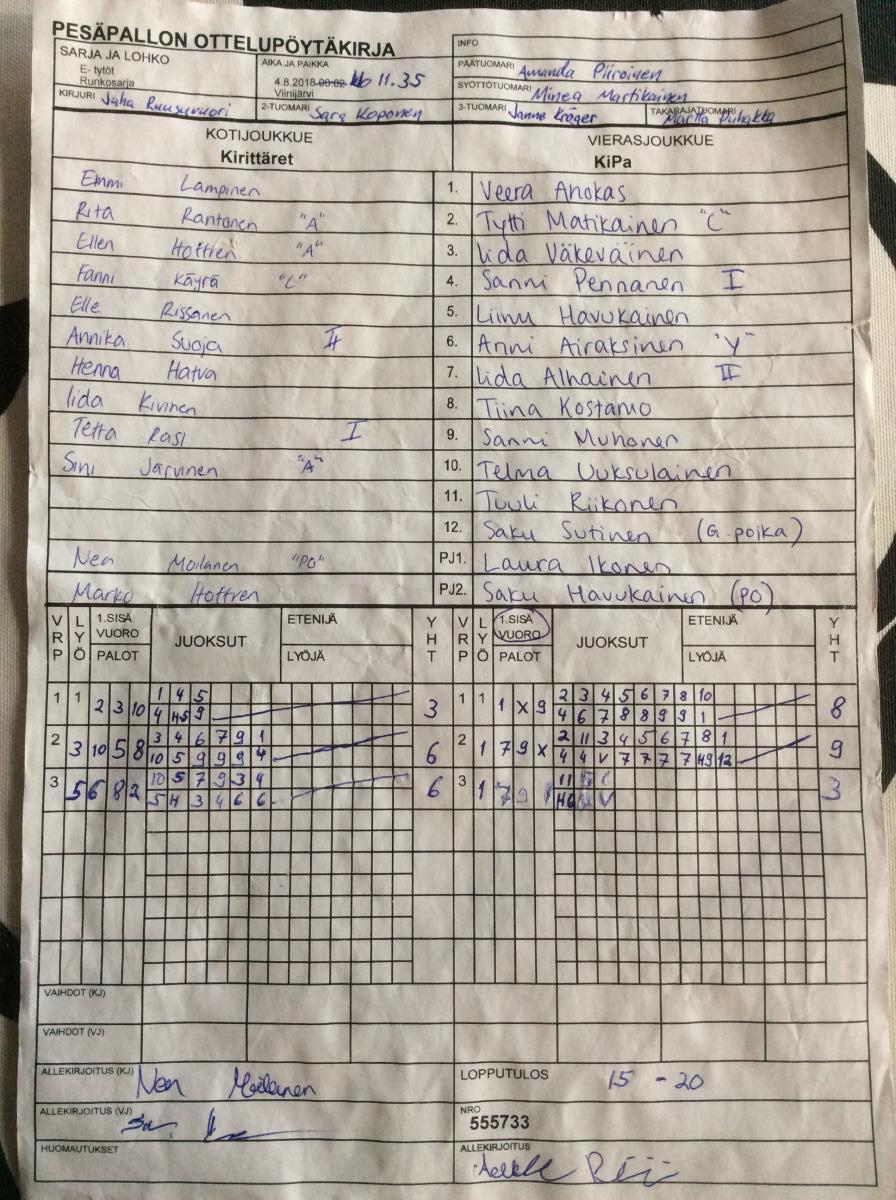 PESÄPALLON OTTELUPÖYTÄKIRJA
INFO
SARJA JA LOHKO
E- tytöt
Runkosarja
AIKA JA PAIKKA
4.8.2018 00:02 klo 11.35
Viinijärvi
PÄÄTUOMARI Amanda Piiroinen
SYÖTTÖTUOMARI Minea Martikainen
KIRJURI Juha Ruusuvuori
2-TUOMARI Sara Koponen
3-TUOMARI Janne Kröger
TAKARAJATUOMARI Martta Puhakka
KOTIJOUKKUE
Kirittäret
VIERASJOUKKUE
KiPa
Emmi Lampinen 1. Veera Ahokas
Rita Rantonen "A" 2. Tytti Matikainen "C"
Ellen Hottren "A" 3. Iida Väkeväinen
Fanni Käyrä "C" 4. Sanni Pennanen I
Elle Rissanen 5. Liinu Havukainen
Annika Suoja II 6. Anni Airaksinen "V"
Henna Hatva 7. Iida Alhainen II
Iida Kivinen 8. Tiina Kostamo
Tetta Rasi I 9. Sanni Muhonen
Sini Järvinen "A" 10. Telma Uuksulainen
11. Tuuli Riikonen
12. Saku Sutinen (G-poika)
Nea Moilanen "PO" PJ1. Laura Ikonen
Marko Hottren PJ2. Saku Havukainen (PO)
VRP LYÖ 1.SISÄ VUORO PALOT JUOKSUT ETENIJÄ LYÖJÄ YHT VRP LYÖ 1.SISÄ VUORO PALOT JUOKSUT ETENIJÄ LYÖJÄ YHT
1 1 2 3 10 1 4 5 3 1 1 1 X 9 2 3 4 5 6 7 8 10 8
4 H5 9 4 6 7 8 8 9 9 1
2 3 10 5 8 3 4 6 7 9 1 6 2 1 7 9 X 2 11 3 4 5 6 7 8 1 9
10 5 9 9 9 4 4 4 V 7 7 7 7 H9 12
3 5 6 8 2 10 5 7 9 3 4 6 3 1 7 9 11 3
5 H 3 4 6 6 H6 V
VAIHDOT (KJ)
VAIHDOT (VJ)
ALLEKIRJOITUS (KJ) Nea Moilanen
LOPPUTULOS 15 - 20
ALLEKIRJOITUS (VJ)
NRO
555733
HUOMAUTUKSET
ALLEKIRJOITUS